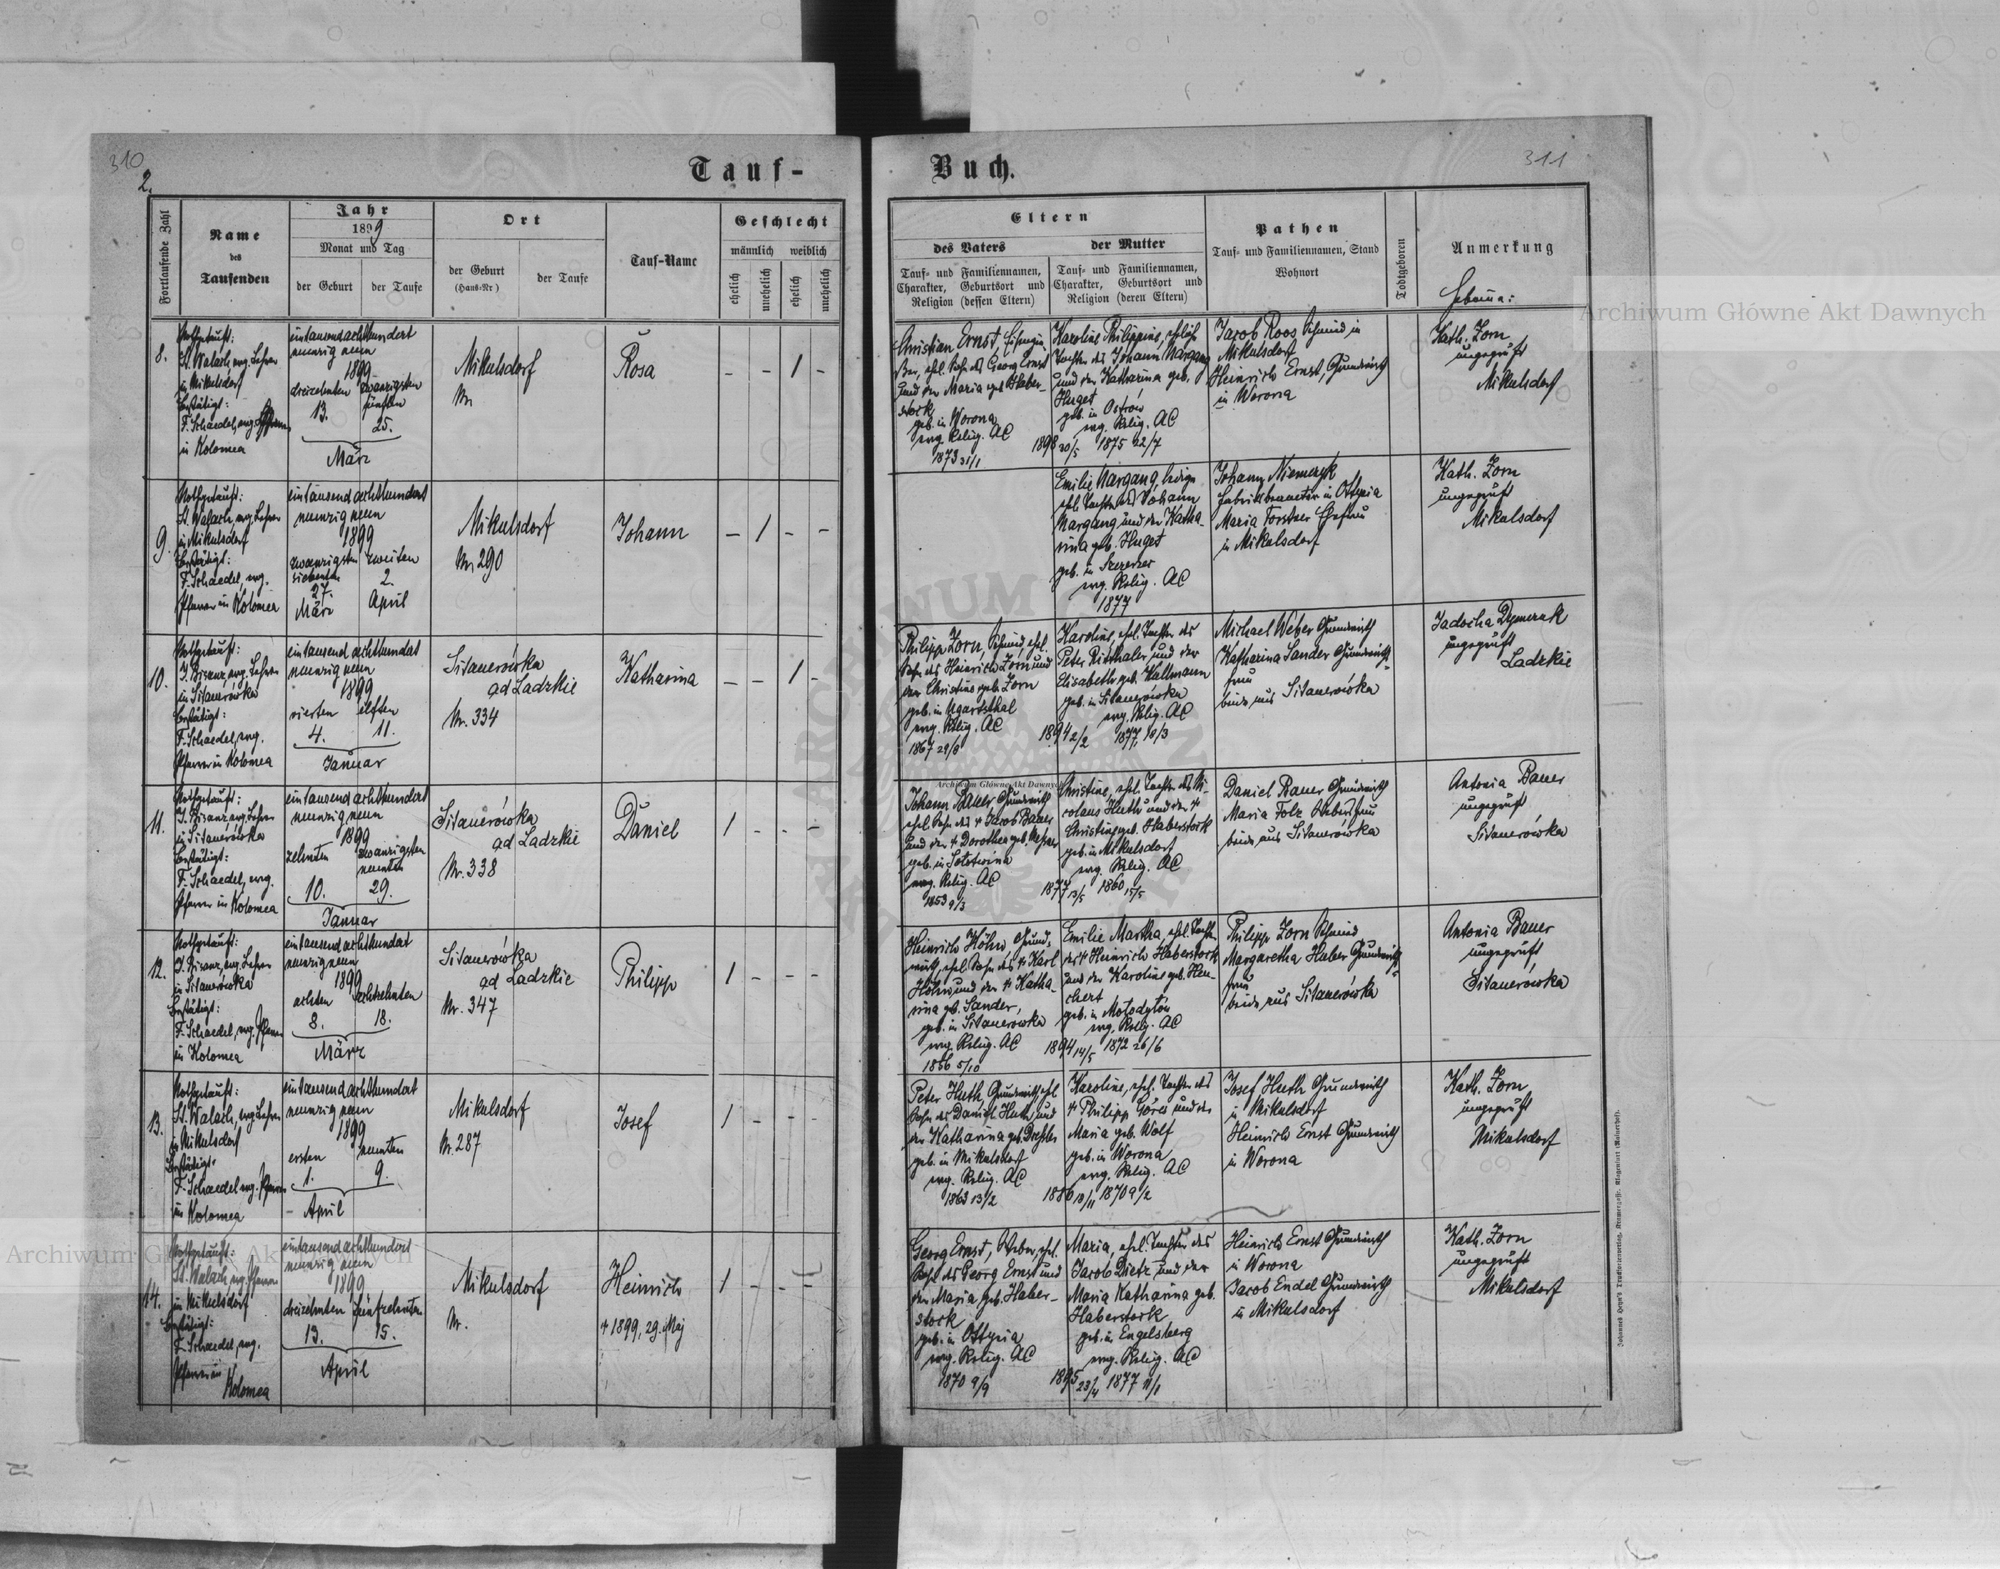 310
2.
Tauf-
Fortlaufende Zahl
Name
des
Taufenden
Jahr
1899
Monat und Tag
der Geburt
der Taufe
Ort
der Geburt
(Haus-Nr.)
der Taufe
Tauf-Name
Geschlecht
männlich
weiblich
ehelich
unehelich
ehelich
unehelich
8.
Nothgetauft:
St. Walach, evg. Lehrer
in Mikulsdorf
bestätigt:
F. Schaedel, evg. Pfarrer
in Kolomea
eintausendachthundert
neunzig neun
1899
dreizehnten
13.
zwanzigsten
fünften
25.
März
Mikulsdorf
Nr.
Rosa
- - 1 -
9.
Nothgetauft:
St. Walach, evg. Lehrer
in Mikulsdorf
bestätigt:
F. Schaedel, evg.
Pfarrer in Kolomea
eintausend achthundert
neunzig neun
1899
zwanzigsten
siebenten
27.
März
zweiten
2.
April
Mikulsdorf
Nr. 290
Johann
- 1 - -
10.
Nothgetauft:
J. Bisanz, evg. Lehrer
in Sitauerówka
bestätigt:
F. Schaedel, evg.
Pfarrer in Kolomea
eintausend achthundert
neunzig neun
1899
vierten
4.
elften
11.
Januar
Sitauerówka
ad Ladzkie
Nr. 334
Katharina
- - 1 -
11.
Nothgetauft:
J. Bisanz, evg. Lehrer
in Sitauerówka
bestätigt:
F. Schaedel, evg.
Pfarrer in Kolomea
eintausend achthundert
neunzig neun
1899
zehnten
10.
zwanzigsten
neunten
29.
Januar
Sitauerówka
ad Ladzkie
Nr. 338
Daniel
1 - - -
12.
Nothgetauft:
J. Bisanz, evg. Lehrer
in Sitauerówka
bestätigt:
F. Schaedel, evg. Pfarrer
in Kolomea
eintausend achthundert
neunzig neun
1899
achten
8.
achtzehnten
18.
März
Sitauerówka
ad Ladzkie
Nr. 347
Philipp
1 - - -
13.
Nothgetauft:
St. Walach, evg. Lehrer
in Mikulsdorf
bestätigt:
F. Schaedel, evg. Pfarrer
in Kolomea
eintausend achthundert
neunzig neun
1899
ersten
1.
neunten
9.
April
Mikulsdorf
Nr. 287
Josef
1 - - -
14.
Nothgetauft:
St. Walach, evg. Pfarrer
in Mikulsdorf
bestätigt:
F. Schaedel, evg.
Pfarrer in
Kolomea
eintausend achthundert
neunzig neun
1899
dreizehnten
13.
fünfzehnten
15.
April
Mikulsdorf
Nr.
Heinrich
† 1899, 29. Maj
1 - - -
311
Buch.
Eltern
des Vaters
Tauf- und Familiennamen,
Charakter, Geburtsort und
Religion (dessen Eltern)
der Mutter
Tauf- und Familiennamen,
Charakter, Geburtsort und
Religion (deren Eltern)
Pathen
Tauf- und Familiennamen, Stand
Wohnort
Todtgeboren
Anmerkung
Hebeme:
Christian Ernst,
ehel. Sohn des Georg Ernst
und der Maria geb. Haber-
stock
geb. in Worona
evg. Relig. AC
1873 31/1
1898 20/5
Karoline Philippine, ehel.
Tochter des Johann Margang
und der Katharina geb.
Huget
geb. in Ostrów
evg. Relig. AC
1875 22/7
Jacob Roos Schmied in
Mikulsdorf
Heinrich Ernst, Grundwirth
in Worona
Kath. Zorn
ungeprüft
Mikulsdorf
Emilie Margang, ledige
ehel. Tochter des Johann
Margang und der Katha-
rina geb. Huget
geb. in Szerzec
evg. Relig. AC
1877
Johann Niemczyk
Fabriksbeamter in Ottynia
Maria Forstner Ehefrau
in Mikulsdorf
Kath. Zorn
ungeprüft
Mikulsdorf
Philipp Zorn, Schmied, ehel.
Sohn des Heinrich Zorn und
der Christine geb. Zorn
geb. in Ugartsthal
evg. Relig. AC
1867 29/8
1894 2/2
Karoline, ehel. Tochter des
Peter Ritthaler und der
Elisabeth geb. Kallmann
geb. in Sitauerówka
evg. Relig. AC
1877, 10/3
Michael Weber Grundwirth
Katharina Sander Grundwirths-
frau
beide aus Sitauerówka
Jadocha Dymczak
ungeprüft
Ladzkie
Johann Bauer Grundwirth
ehel. Sohn des † Jacob Bauer
und der † Dorothea geb.
geb. in Sołotwina
evg. Relig. AC
1853 9/3
1877 13/5
Christine, ehel. Tochter des Ni-
colaus Huth und der †
Christine geb. Haberstock
geb. in Mikulsdorf
evg. Relig. AC
1860 15/5
Daniel Bauer Grundwirth
Maria Folz
beide aus Sitauerówka
Antonia Bauer
ungeprüft
Sitauerówka
Heinrich Höhn Grund-
wirth, ehel. Sohn des † Karl
Höhn und der † Katha-
rina geb. Sander,
geb. in Sitauerowka
evg. Relig. AC
1856 5/10
1894 14/5
Emilie Martha, ehel. Tochter
des † Heinrich Haberstock
und der Karoline geb. Hen-
chert
geb. in Mołodyłów
evg. Relig. AC
1872 26/6
Philipp Zorn Schmied
Margaretha Huber Grundwirths-
frau
beide aus Sitauerówka
Antonia Bauer
ungeprüft
Sitauerówka
Peter Huth, Grundwirth, ehel.
Sohn des Daniel Huth und
der Katharina geb. Drehsler
geb. in Mikulsdorf
evg. Relig. AC
1863 13/2
1886 13/11
Karoline, ehel. Tochter des
† Philipp Göres und der
Maria geb. Wolf
geb. in Worona
evg. Relig. AC
1870 9/2
Josef Huth Grundwirth
in Mikulsdorf
Heinrich Ernst Grundwirth
in Worona
Kath. Zorn
ungeprüft
Mikulsdorf
Georg Ernst, Weber, ehel.
Sohn des Georg Ernst und
der Maria, geb. Haber-
stock
geb. in Ottynia
evg. Relig. AC
1870 9/9
1895 23/4
Maria, ehel. Tochter des
Jacob Dietz und der
Maria Katharina geb.
Haberstock
geb. in Engelsberg
evg. Relig. AC
1877 11/1
Heinrich Ernst Grundwirth
in Worona
Jacob Endel Grundwirth
in Mikulsdorf
Kath. Zorn
ungeprüft
Mikulsdorf
Archiwum Główne Akt Dawnych
Archiwum Główne Akt Dawnych
Archiwum Główne Akt Dawnych